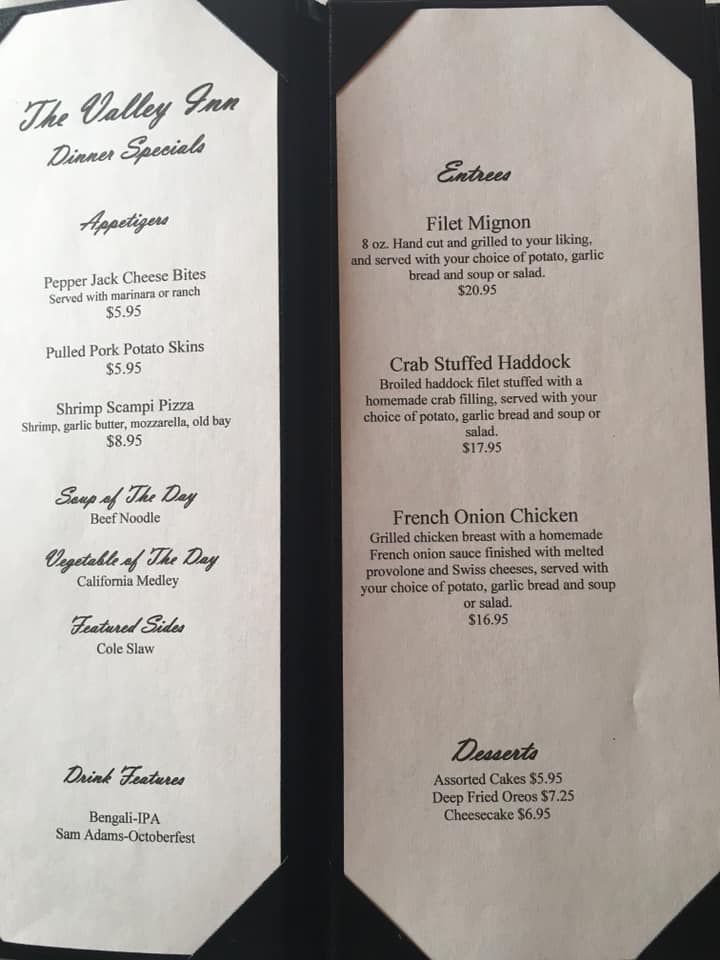 The Valley Inn
Dinner Specials
Appetizers
Pepper Jack Cheese Bites
Served with marinara or ranch
$5.95
Pulled Pork Potato Skins
$5.95
Shrimp Scampi Pizza
Shrimp, garlic butter, mozzarella, old bay
$8.95
Soup of The Day
Beef Noodle
Vegetable of The Day
California Medley
Featured Sides
Cole Slaw
Drink Features
Bengali-IPA
Sam Adams-Octoberfest
Entrees
Filet Mignon
8 oz. Hand cut and grilled to your liking,
and served with your choice of potato, garlic
bread and soup or salad.
$20.95
Crab Stuffed Haddock
Broiled haddock filet stuffed with a
homemade crab filling, served with your
choice of potato, garlic bread and soup or
salad.
$17.95
French Onion Chicken
Grilled chicken breast with a homemade
French onion sauce finished with melted
provolone and Swiss cheeses, served with
your choice of potato, garlic bread and soup
or salad.
$16.95
Desserts
Assorted Cakes $5.95
Deep Fried Oreos $7.25
Cheesecake $6.95